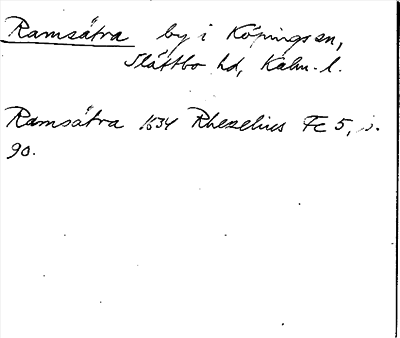 Ramsätra by i Köpings sn,
Slättbo hd, Kalm. l.
Ramsätra 1634 Rhezelius Fc 5, s.
90.